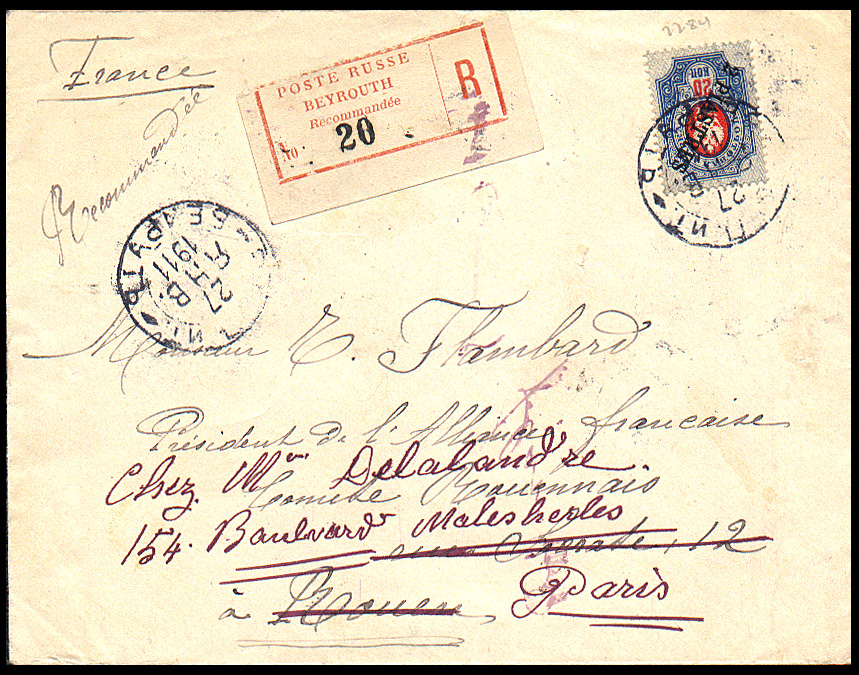 2284
France
Recommandée
POSTE RUSSE
BEYROUTH
Recommandée
R
No 20
20
КОП
БЕЙРУТЪ
27
ЯНВ
1911
27
Monsieur E. Flambard
Président de l'Alliance française
Chez Mme Delalandre.
Comité Rouennais
154. Boulevard Malesherbes
12
à Rouen, Paris